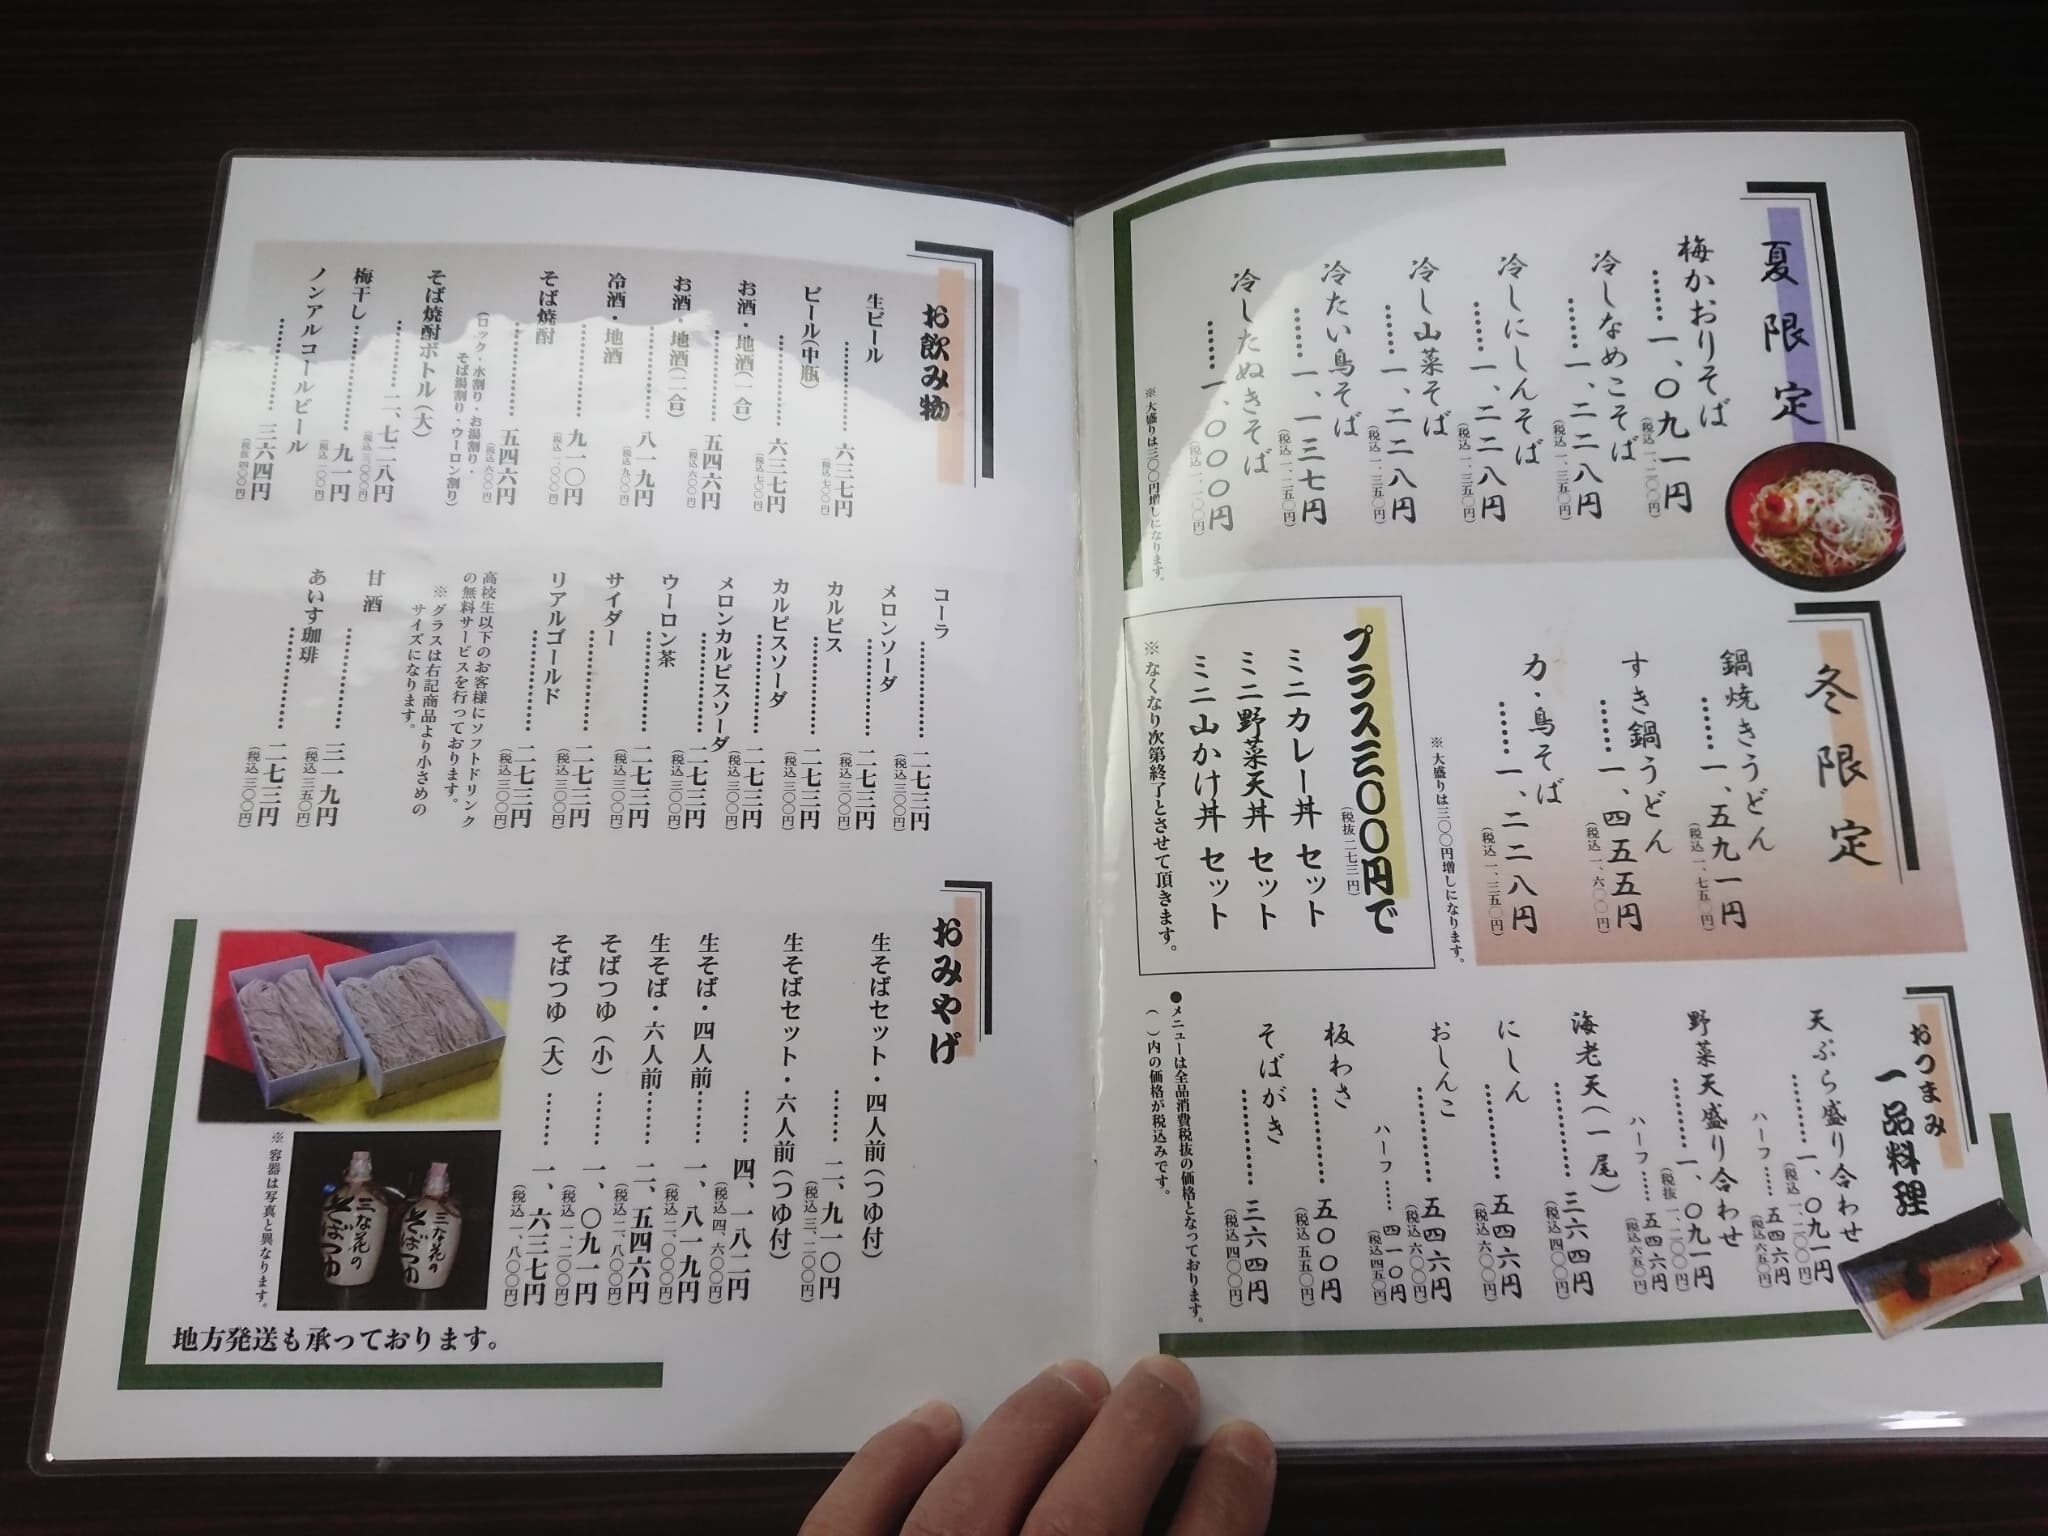 夏限定
梅かおりそば
……一、〇九一円
(税込 一、二〇〇円)
冷しなめこそば
……一、二二八円
(税込 一、三五〇円)
冷しにしんそば
……一、二二八円
(税込 一、三五〇円)
冷し山菜そば
……一、二二八円
(税込 一、三五〇円)
冷たい鳥そば
……一、一三七円
(税込 一、二五〇円)
冷したぬきそば
……一、〇〇〇円
(税込 一、一〇〇円)
※大盛りは三〇〇円増しになります。
冬限定
鍋焼きうどん
……一、五九一円
(税込 一、七五〇円)
すき鍋うどん
……一、四五五円
(税込 一、六〇〇円)
力・鳥そば
……一、二二八円
(税込 一、三五〇円)
※大盛りは三〇〇円増しになります。
プラス三〇〇円で
(税抜 二七三円)
ミニカレー丼 セット
ミニ野菜天丼 セット
ミニ山かけ丼 セット
※なくなり次第終了とさせて頂きます。
おつまみ
一品料理
天ぷら盛り合わせ
……一、〇九一円
(税込 一、二〇〇円)
ハーフ……五四六円
(税込 六五〇円)
野菜天盛り合わせ
……一、〇九一円
(税抜 一、一〇〇円)
ハーフ……五四六円
(税込 六五〇円)
海老天(一尾)
……三六四円
(税込 四〇〇円)
にしん……五四六円
(税込 六〇〇円)
おしんこ……五四六円
(税込 六〇〇円)
ハーフ……四一〇円
(税込 四五〇円)
板わさ……五〇〇円
(税込 五五〇円)
そばがき……三六四円
(税込 四〇〇円)
●メニューは全品消費税抜の価格となっております。
( )内の価格が税込みです。
お飲み物
生ビール……六三七円
(税込 七〇〇円)
ビール(中瓶)……六三七円
(税込 七〇〇円)
お酒・地酒(一合)……五四六円
(税込 六〇〇円)
お酒・地酒(二合)……八一九円
(税込 九〇〇円)
冷酒・地酒……九一〇円
(税込 一、〇〇〇円)
そば焼酎……五四六円
(税込 六〇〇円)
(ロック・水割り・お湯割り・
そば湯割り・ウーロン割り)
そば焼酎ボトル(大)
……二、七二八円
(税込 三、〇〇〇円)
梅干し……九一円
(税込 一〇〇円)
ノンアルコールビール
……三六四円
(税抜 四〇〇円)
コーラ……二七三円
(税込 三〇〇円)
メロンソーダ……二七三円
(税込 三〇〇円)
カルピス……二七三円
(税込 三〇〇円)
カルピスソーダ……二七三円
(税込 三〇〇円)
メロンカルピスソーダ……二七三円
(税込 三〇〇円)
ウーロン茶……二七三円
(税込 三〇〇円)
サイダー……二七三円
(税込 三〇〇円)
リアルゴールド……二七三円
(税込 三〇〇円)
高校生以下のお客様にソフトドリンク
の無料サービスを行っております。
※グラスは右記商品より小さめの
サイズになります。
甘酒……三一九円
(税込 三五〇円)
あいす珈琲……二七三円
(税込 三〇〇円)
おみやげ
生そばセット・四人前(つゆ付)
……二、九一〇円
(税込 三、二〇〇円)
生そばセット・六人前(つゆ付)
……四、一八二円
(税込 四、六〇〇円)
生そば・四人前……一、八一九円
(税込 二、〇〇〇円)
生そば・六人前……二、五四六円
(税込 二、八〇〇円)
そばつゆ(小)……一、〇九一円
(税込 一、二〇〇円)
そばつゆ(大)……一、六三七円
(税込 一、八〇〇円)
三な花の
そばつゆ
三な花の
そばつゆ
※容器は写真と異なります。
地方発送も承っております。